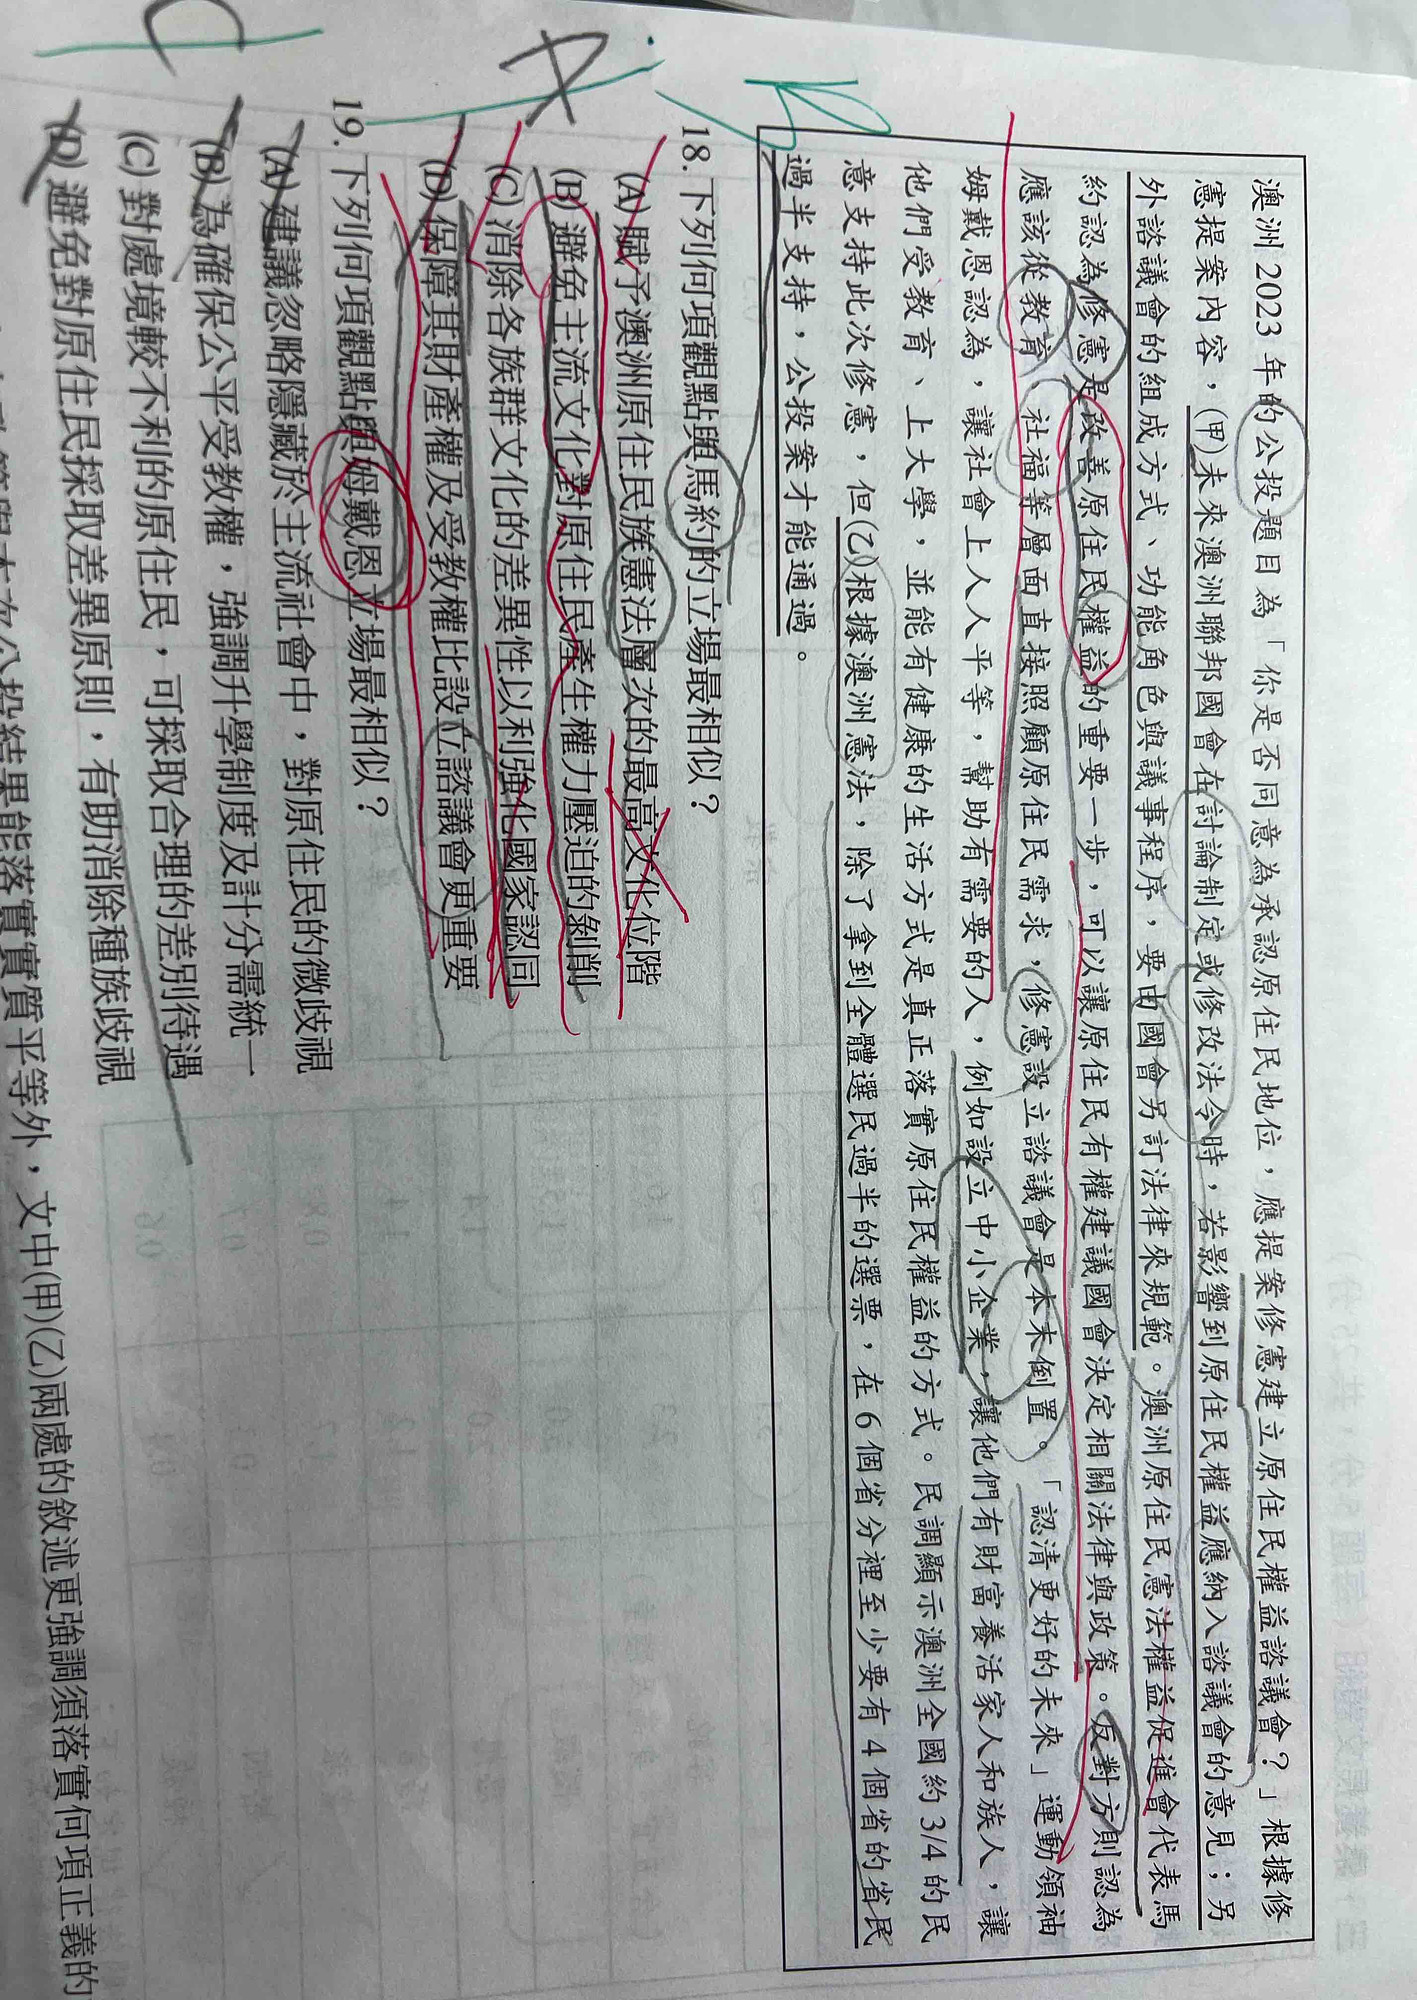 澳洲 2023 年的公投題目為「你是否同意為承認原住民地位，應提案修憲建立原住民權益諮議會？」根據修
憲提案內容，(甲)未來澳洲聯邦國會在討論制定或修改法令時，若影響到原住民權益應納入諮議會的意見；另
外諮議會的組成方式、功能角色與議事程序，要由國會另訂法律來規範。澳洲原住民憲法權益促進會代表馬
約認為修憲是改善原住民權益的重要一步，可以讓原住民有權建議國會決定相關法律與政策。反對方則認為
應該從教育、社福等層面直接照顧原住民需求，修憲設立諮議會是本末倒置。「認清更好的未來」運動領袖
姆戴恩認為，讓社會上人人平等，幫助有需要的人，例如設立中小企業，讓他們有財富養活家人和族人，讓
他們受教育、上大學，並能有健康的生活方式是真正落實原住民權益的方式。民調顯示澳洲全國約 3/4 的民
意支持此次修憲，但(乙)根據澳洲憲法，除了拿到全體選民過半的選票，在 6 個省分裡至少要有 4 個省的省民
過半支持，公投案才能通過。
18. 下列何項觀點與馬約的立場最相似？
(A) 賦予澳洲原住民族憲法層次的最高文化位階
(B) 避免主流文化對原住民產生權力壓迫的剝削
(C) 消除各族群文化的差異性以利強化國家認同
(D) 保障其財產權及受教權比設立諮議會更重要
19. 下列何項觀點與姆戴恩立場最相似？
(A) 建議忽略隱藏於主流社會中，對原住民的微歧視
(B) 為確保公平受教權，強調升學制度及計分需統一
(C) 對處境較不利的原住民，可採取合理的差別待遇
(D) 避免對原住民採取差異原則，有助消除種族歧視
公投結果能落實實質平等外，文中(甲)(乙)兩處的敘述更強調須落實何項正義的